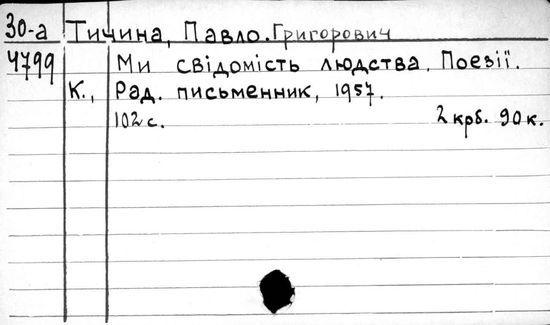 30-а Тичина, Павло. Григорович
4799 Ми свідомість людства. Поезії.
К., Рад. письменник, 1957.
102 с. 2 крб. 90 к.